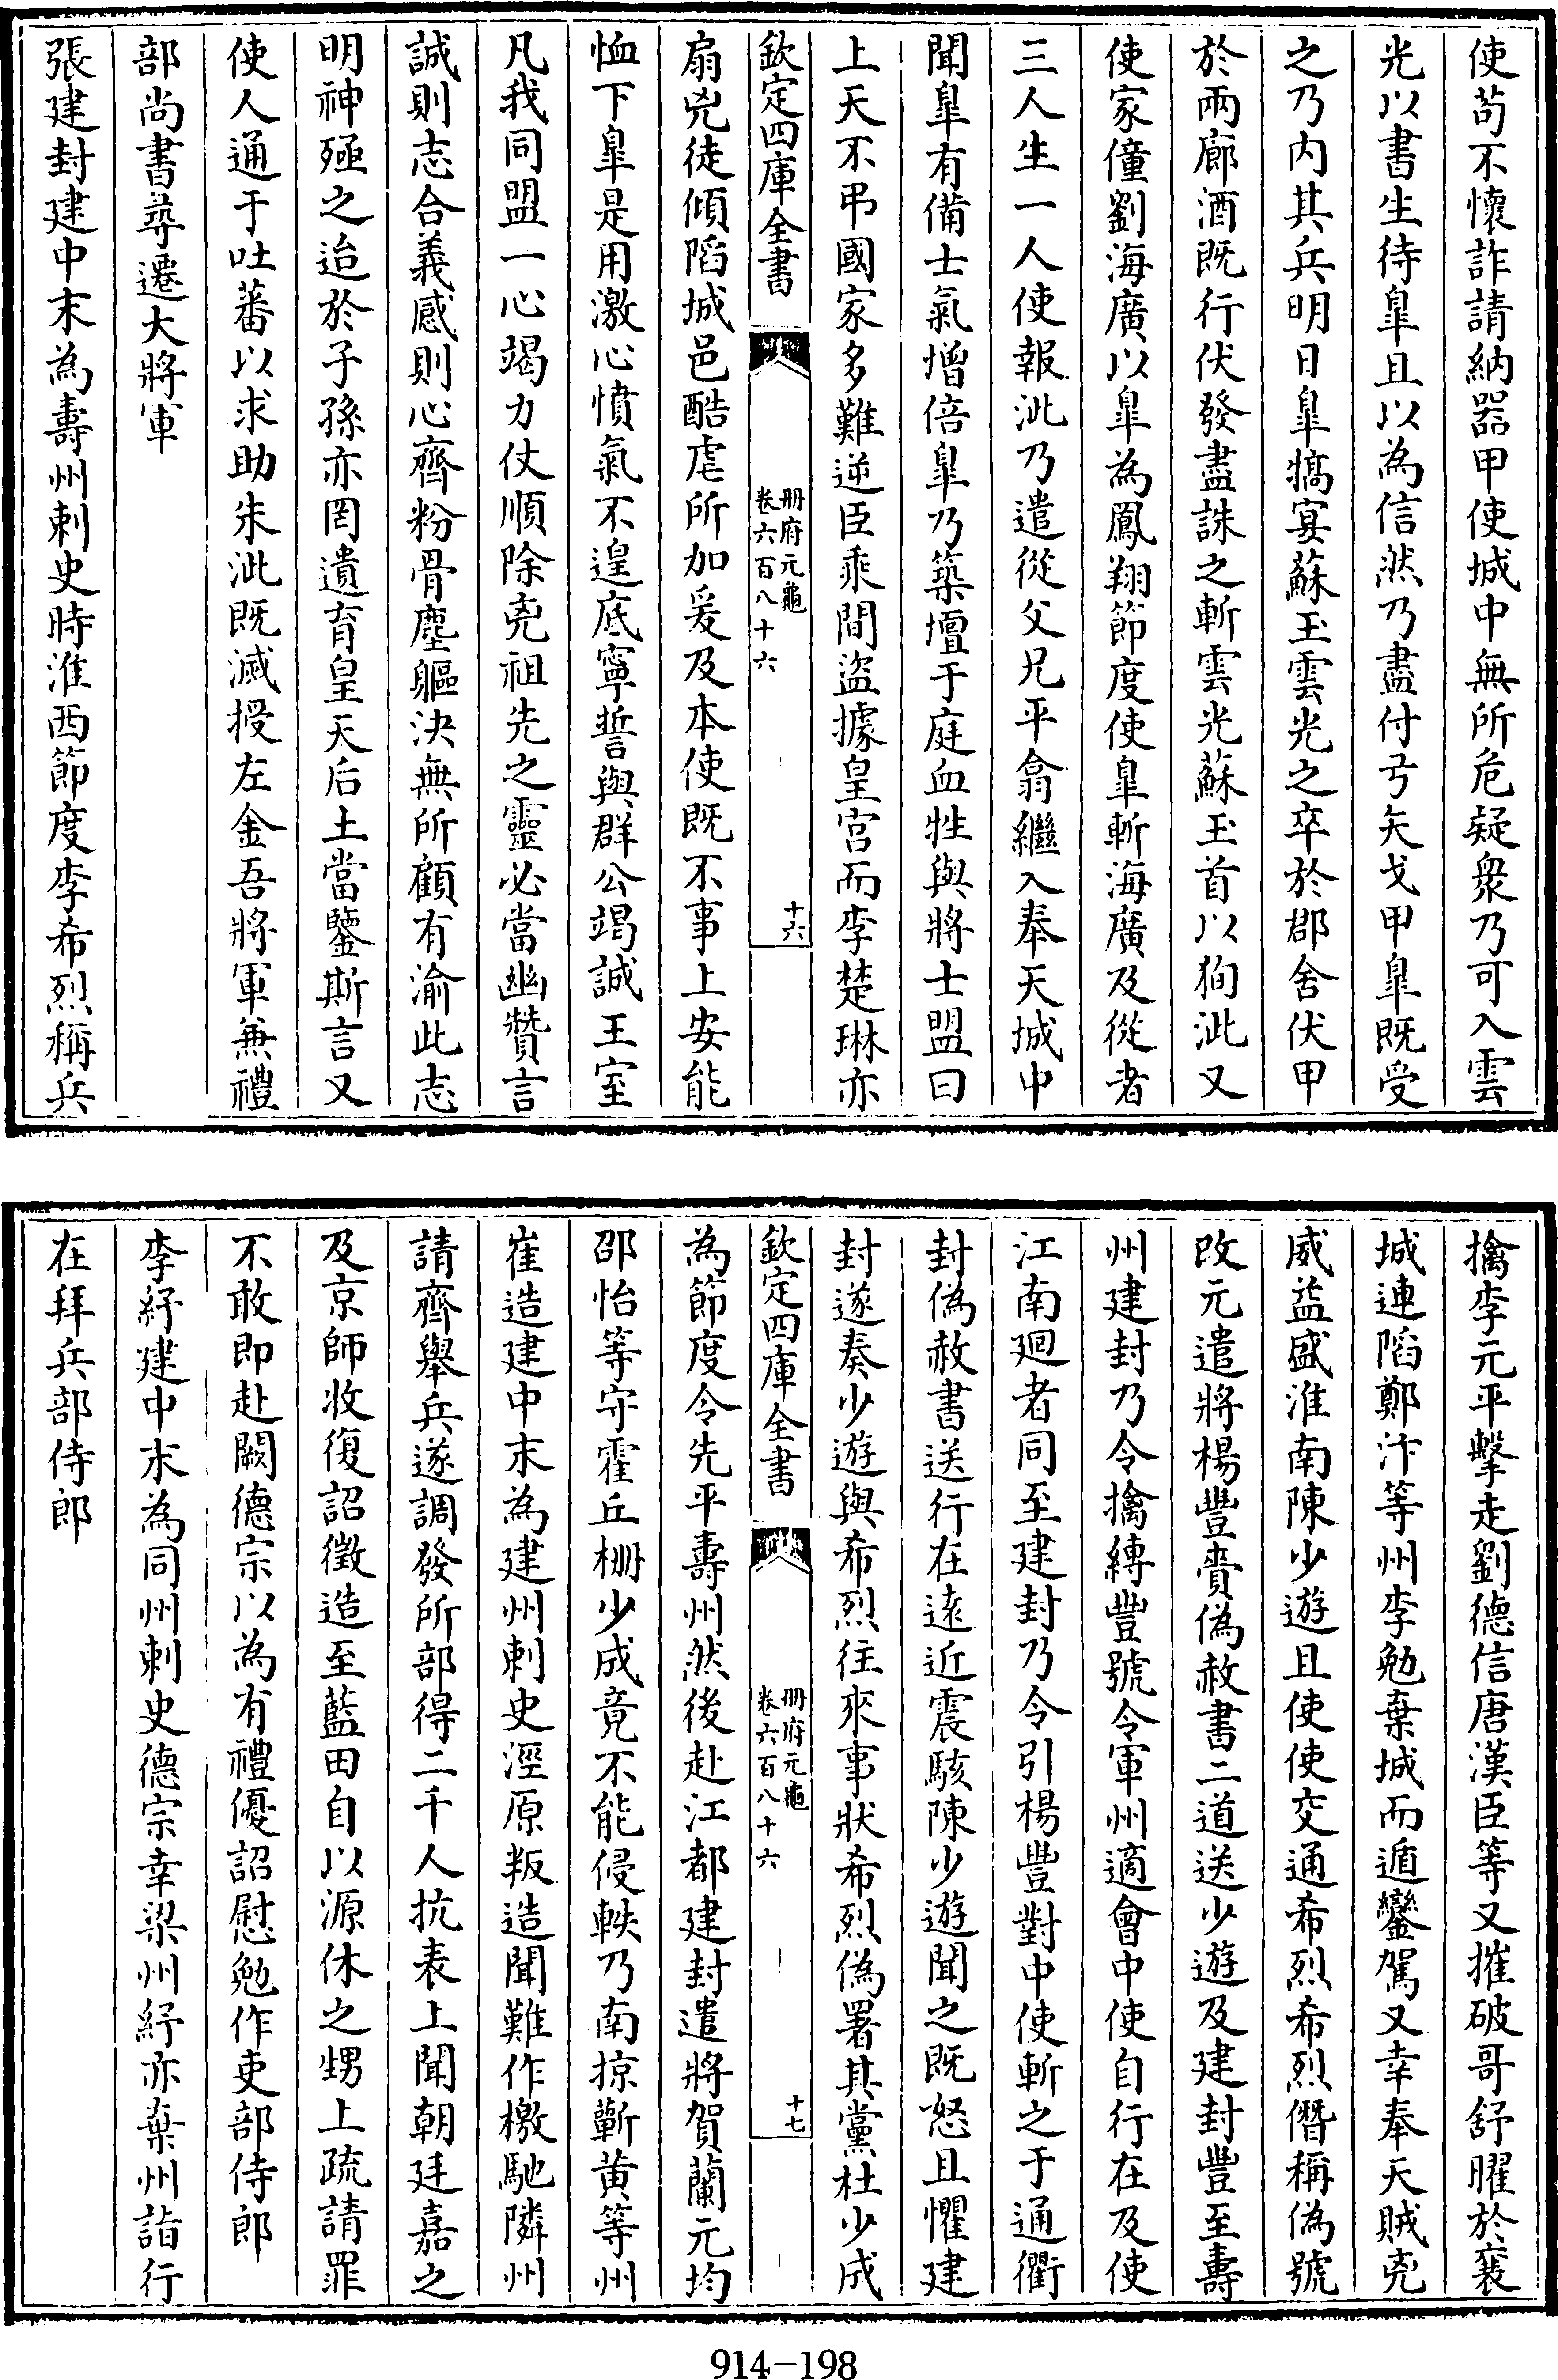 使苟不懷詐請納器甲使城中無所危疑衆乃可入雲
光以書生待臯且以為信然乃盡付弓矢戈甲臯既受
之乃内其兵明日臯犒宴蘇玉雲光之卒於郡舍伏甲
於兩廊酒既行伏發盡誅之斬雲光蘇玉首以狥泚又
使家僮劉海廣以臯為鳳翔節度使臯斬海廣及從者
三人生一人使報泚乃遣從父兄平翕繼入奉天城中
聞臯有備士氣增倍臯乃築壇于庭血牲與將士盟曰
上天不弔國家多難逆臣乘間盜據皇宫而李楚琳亦
欽定四庫全書
册府元龜
卷六百八十六
十六
扇兇徒傾陷城邑酷虐所加爰及本使既不事上安能
恤下臯是用激心憤氣不遑底寧誓與群公竭誠王室
凡我同盟一心竭力仗順除兇祖先之靈必當幽贊言
誠則志合義感則心齊粉骨塵軀決無所顧有渝此志
明神殛之迨於子孫亦罔遺育皇天后土當鑒斯言又
使人通于吐蕃以求助朱泚既滅授左金吾將軍兼禮
部尚書尋遷大將軍
張建封建中末為壽州刺史時淮西節度李希烈稱兵
擒李元平擊走劉德信唐漢臣等又摧破哥舒曜於襄
城連陷鄭汴等州李勉棄城而遁鑾駕又幸奉天賊兇
威益盛淮南陳少遊且使使交通希烈希烈僭稱偽號
改元遣將楊豐賫偽赦書二道送少遊及建封豐至壽
州建封乃令擒縛豐號令軍州適會中使自行在及使
江南廻者同至建封乃令引楊豐對中使斬之于通衢
封偽赦書送行在逺近震駭陳少遊聞之既怒且懼建
封遂奏少遊與希烈往來事狀希烈偽署其黨杜少成
欽定四庫全書
册府元龜
卷六百八十六
十七
為節度令先平壽州然後赴江都建封遣將賀蘭元均
邵怡等守霍丘栅少成竟不能侵軼乃南掠蘄黄等州
崔造建中末為建州刺史涇原叛造聞難作檄馳隣州
請齊舉兵遂調發所部得二千人抗表上聞朝廷嘉之
及京師收復詔徵造至藍田自以源休之甥上疏請罪
不敢即赴闕德宗以為有禮優詔慰勉作吏部侍郎
李紓建中末為同州刺史德宗幸梁州紓亦棄州詣行
在拜兵部侍郎
914-198